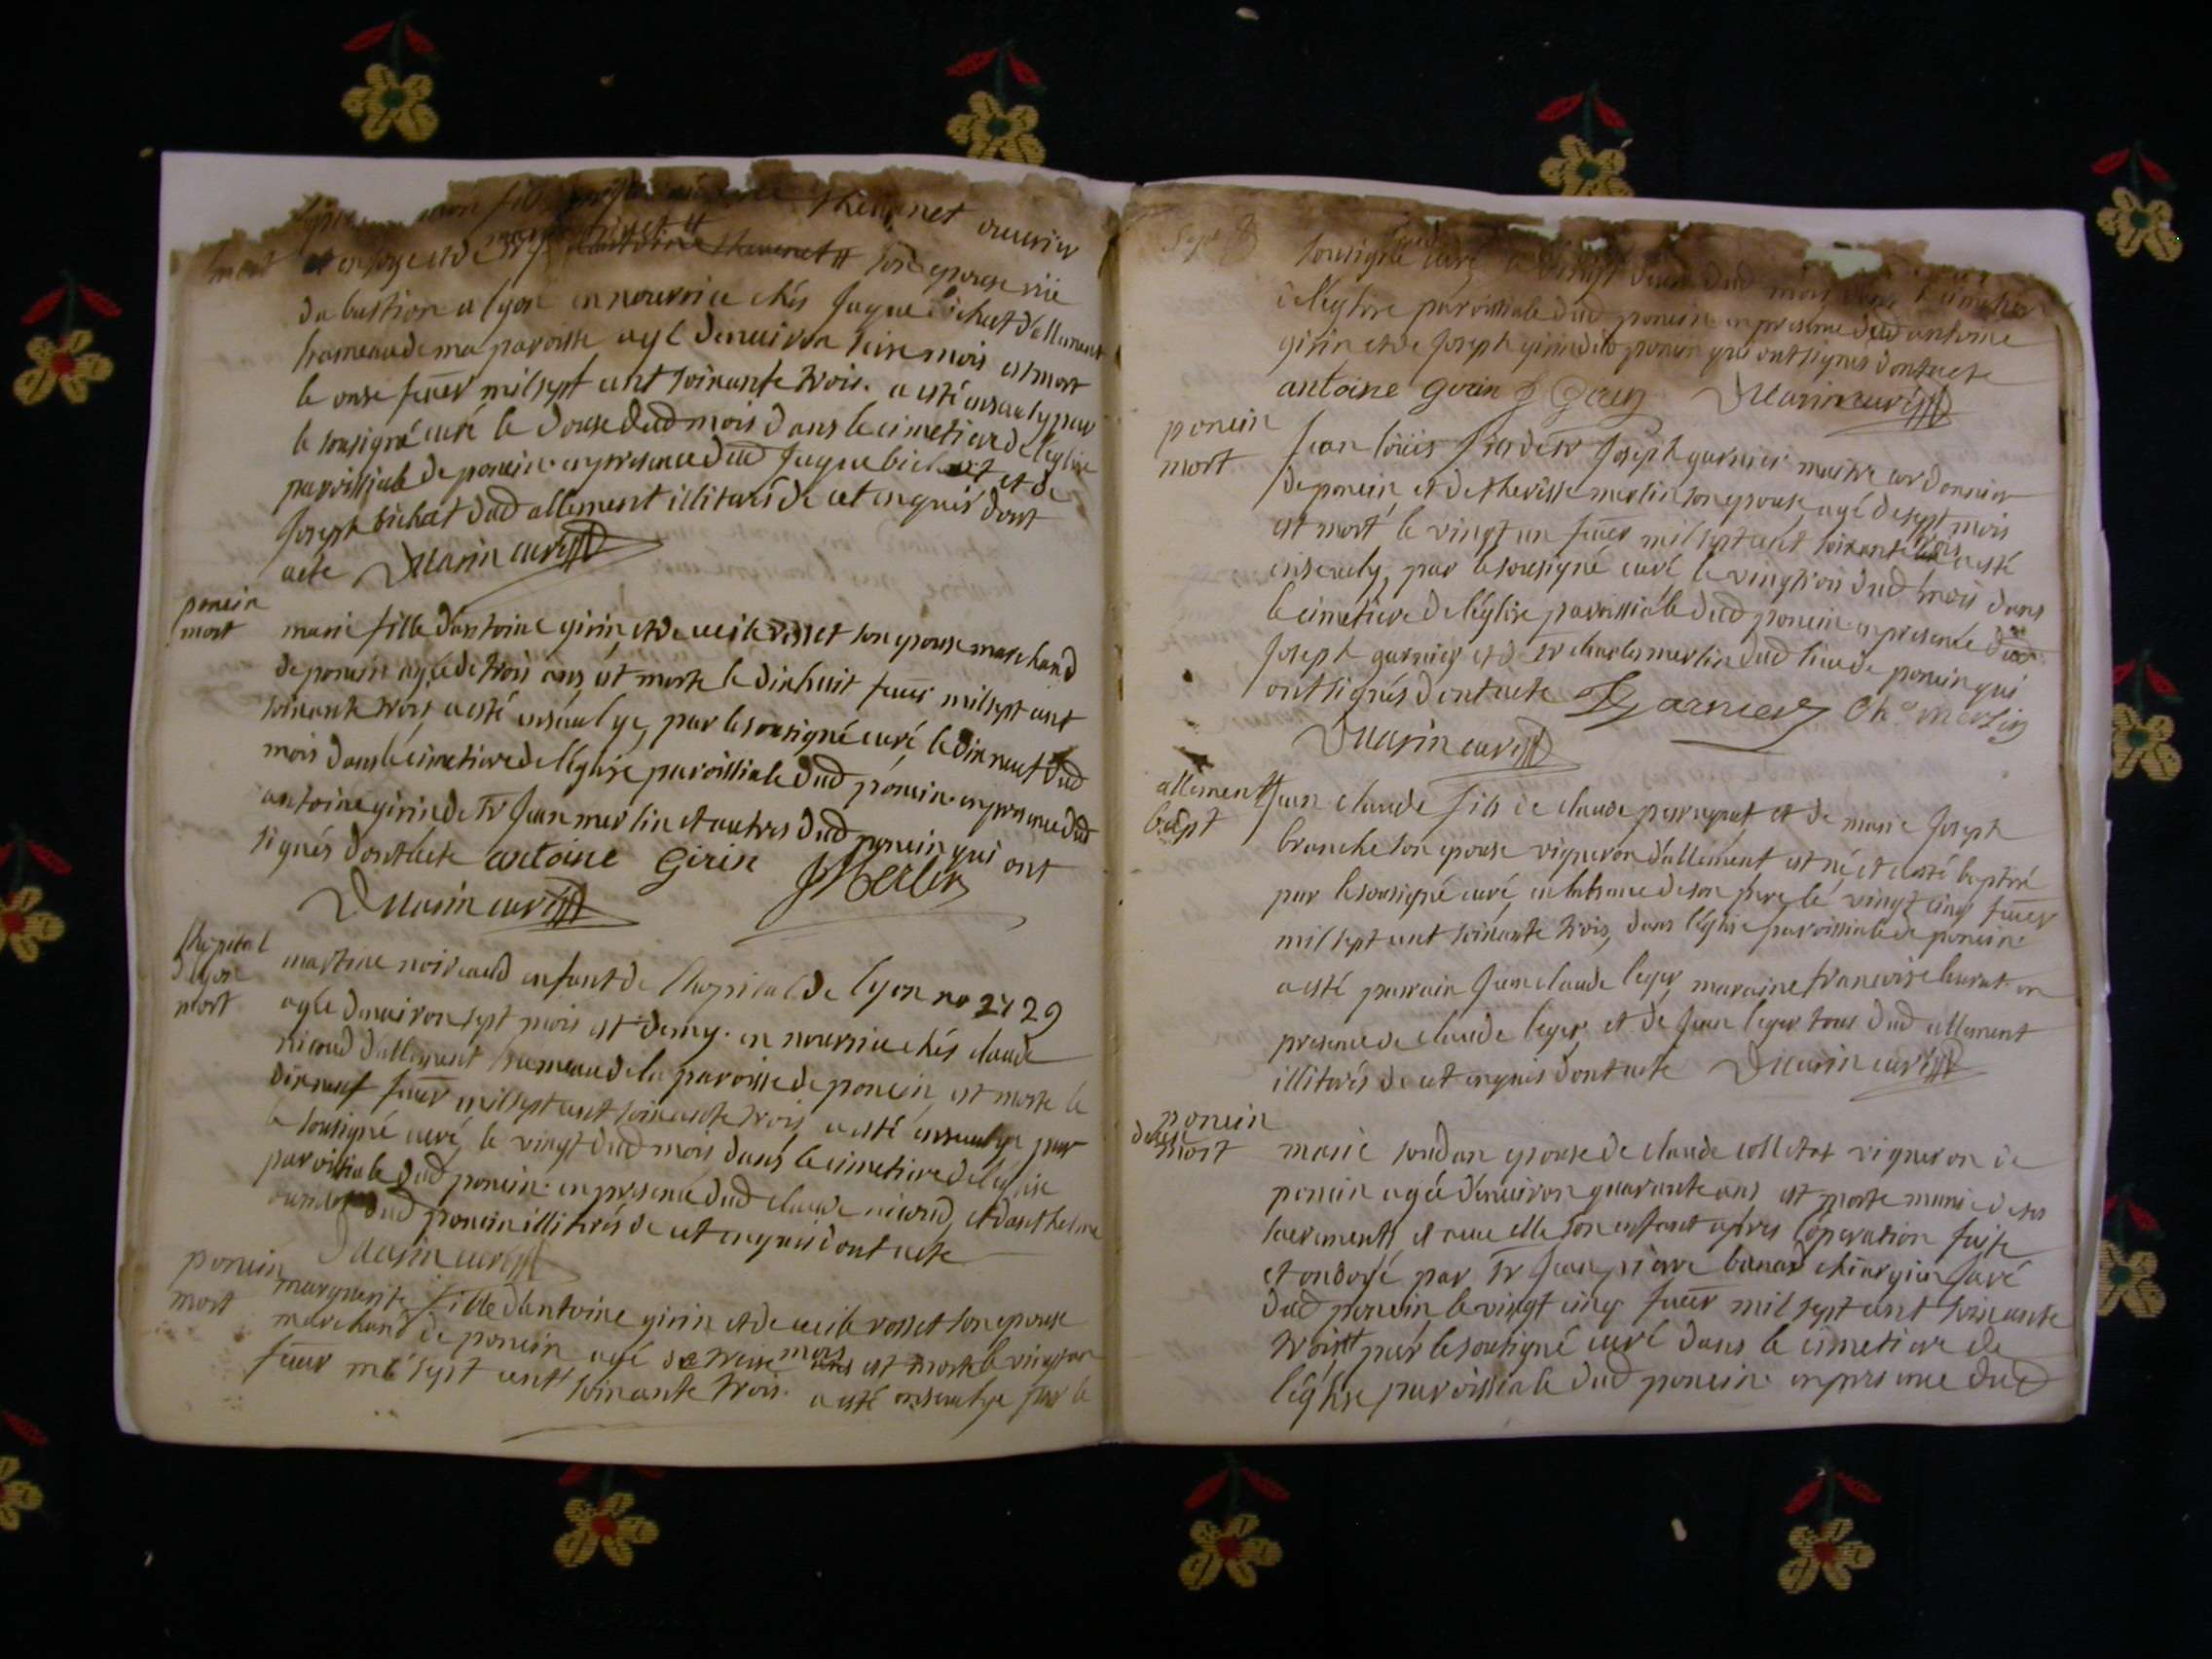 thevenet ouvrier
mort
et de son epouse rüe
du bastion a lyon en nourrice chés Jaque bichat d'allement
hameau de ma paroisse agé denuiron seise mois est mort
le onse feuer mil sept cent soixante trois. a esté enseuely par
le sousigné curé le douse dud mois dans le cimetiere de leglise
paroissiale de poncin. en presence dud Jaque bichat et de
Joseph bichat dud allement illiterés de ce enquis dont
acte Dmarin curé
poncin
mort
marie fille d'antoine girin et de cecile rosset son epouse marchand
de poncin agée de trois ans est morte le dixhuit feuer mil sept cent
soixante trois a esté enseuelye, par le sousigné curé le dixneuf dud
mois dans le cimetiere de l'église paroissiale dud poncin. en presence dud
antoine girin de Sr Jean merlin et autres dud poncin qui ont
signés dont acte antoine Girin JMerlin
Dmarin curé
lhopital
de lyon
mort
martine noiraud enfant de lhopital de lyon no 2729
agée denuiron sept mois et demy. en nourrice chés claude
nicoud d'allement hameau de la paroisse de poncin, est morte le
dixneuf feuer mil sept cent soixante trois a esté enseuelye par
le sousigné curé, le vingt dud mois dans le cimetiere de leglise
paroissiale dud poncin. en presence dud claude nicoud, et danthelme
dud poncin illiterés de ce enquis dont acte
Dmarin curé
poncin
mort
marguerite fille d'antoine girin et de cecile rosset son epouse
marchand de poncin agé de treise mois est morte le vingt un
feuer mil sept cent soixante trois. a esté enseuelye par le
sousigné curé le vingt deux dud mois dans le cimetiere
de l'église paroissiale dud poncin en presence dud antoine
girin et de Joseph girin dud poncin qui ont signés dont acte
antoine girin J Girin Dmarin curé
poncin
mort
Jean loüis fils de Sr Joseph garnier maitre cordonnier
de poncin et de theresse merlin son epouse, agé de sept mois
est mort le vingt un feuer mil sept cent soixante trois a esté
enseuely, par le sousigné curé le vingtrois dud mois dans
le cimetiere de l'église paroissiale dud poncin en presence dud
Joseph garnier et de Sr charles merlin dud lieu de poncin qui
ont signés dont acte JGarnier Ch merlin
Dmarin curé
allement
bapt
Jean claude fils de claude perragnat et de marie Joseph
branche son epouse vigneron d'allement est né et a esté baptisé
par le sousigné curé, en labsence de son pere le vingt cinq feuer
mil sept cent soixante trois, dans l'église paroissiale de poncin.
a esté parrain Jean claude leger, maraine francoise leurat en
presence de claude leger, et de Jean leger tous dud allement
illiterés de ce enquis dont acte Dmarin curé
poncin
mort
marie soudan epouse de claude colletat vigneron de
poncin agée denuiron quarante ans est morte munie de ses
sacrements et auec elle son enfant apres l'operation faite
et ondoyé par Sr Jean pierre banas chirurgien Juré
dud poncin le vingt cinq feuer mil sept cent soixante
trois par le sousigné curé dans le cimetiere de
l'église paroissiale dud poncin en presence dud